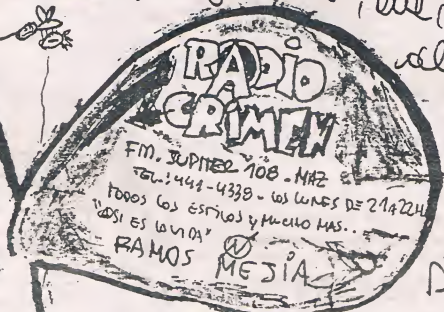 RADIO
CRIMEN
FM. JUPITER 108. MHZ
TEL.: 441-4339 - LOS LUNES DE 21 A 22 H
TODOS LOS ESTILOS Y MUCHO MAS...
"ASI ES LA VIDA"
RAMOS MEJÍA